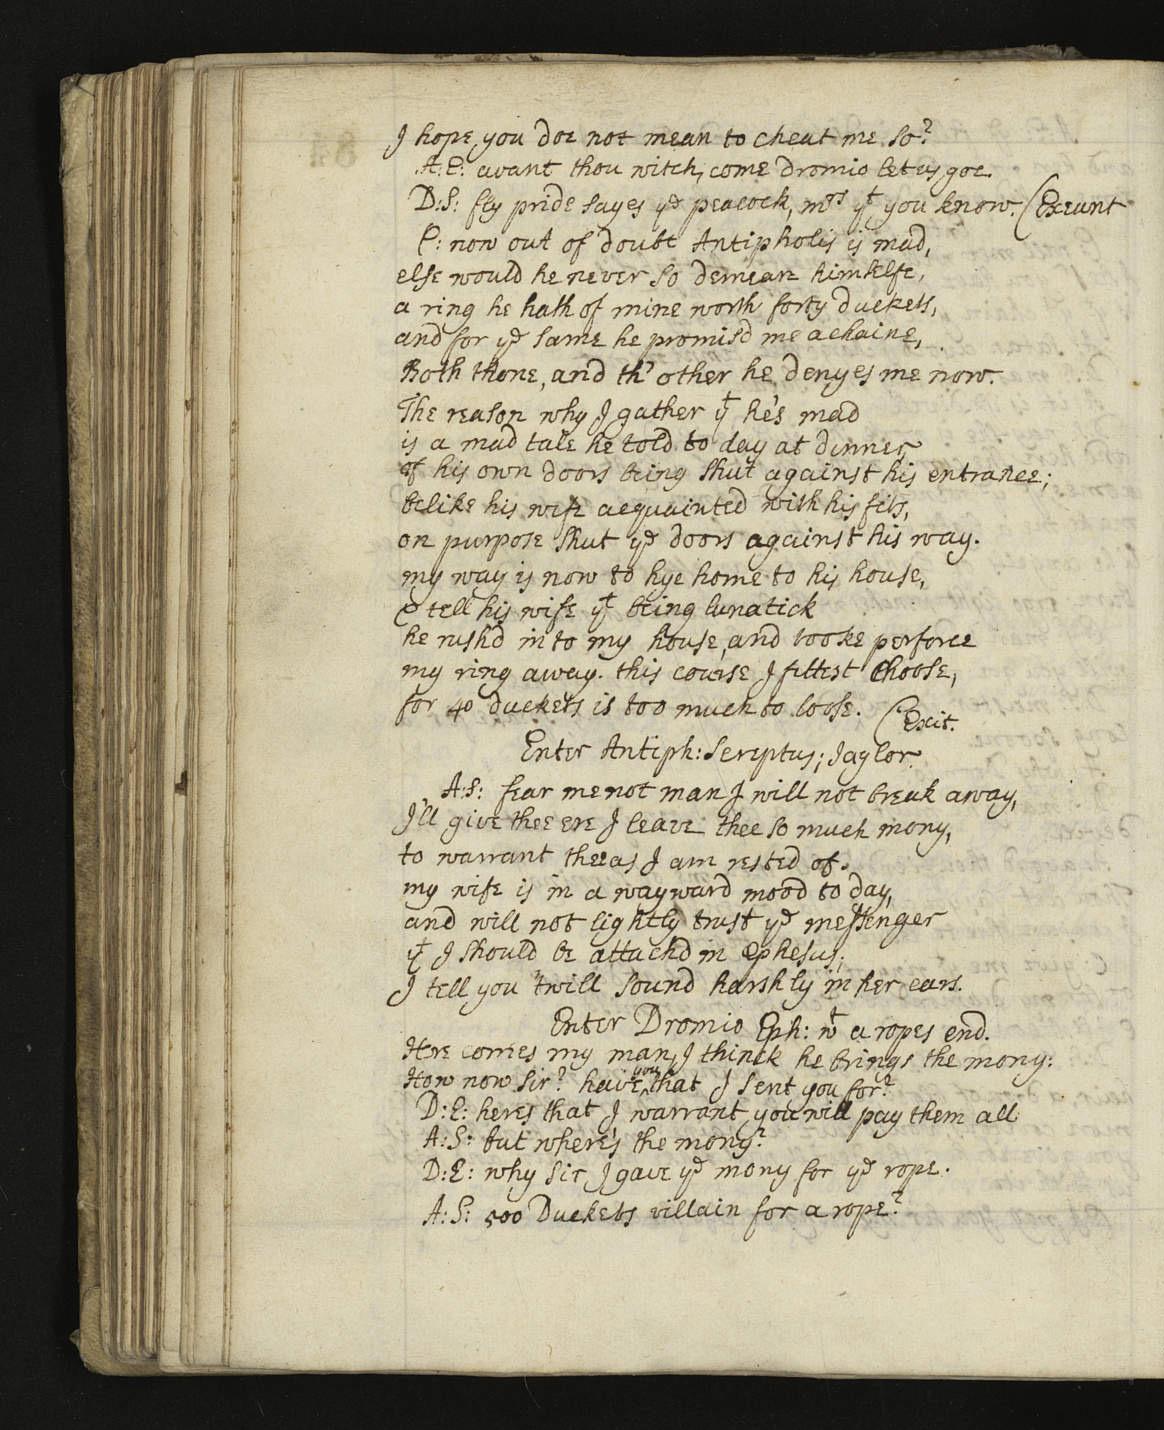 I hope you doe not mean to cheat me so?
A:E: avant thou witch, come Dromio let us goe.
D:S: fly pride sayes yᵉ peacock, mʳˢ yᵗ you know. (Exeunt
C: now out of doubt Antipholis is mad,
else would he never so demean himselfe,
a ring he hath of mine worth forty duckets,
and for yᵉ same he promis'd me a chaine,
Both th'one, and th' other he denyes me now.
The reason why I gather yᵗ he's mad
is a mad tale he told to day at dinner,
of his own doors being shut against his entrance;
belike his wife acquainted with his fits,
on purpose shut yᵉ doors against his way.
my way is now to hye home to his house,
& tell his wife yᵗ being lunatick
he rush'd in to my house, and tooke perforce
my ring away. this course I fittest choose,
for 40 duckets is too much to loose. (Exit.
Enter Antiph: Sereptus; Jaylor.
A:S: fear me not man I will not break away,
I'll give thee ere I leave thee so much mony,
to warrant thee as I am rested of.
my wife is in a wayward mood to day,
and will not lightly trust yᵉ messenger
yᵗ I should be attach'd in Ephesus;
I tell you 'twill sound harshly in her ears.
Enter Dromio Eph: wᵗ a ropes end.
Here comes my man, I thinck he brings the mony:
How now sir? have you that I sent you for?
D:E: heres that I warrant you will pay them all
A:S: but where's the mony?
D:E: why sir I gave yᵉ mony for yᵉ rope.
A:S: 500 Duckets villain for a rope?